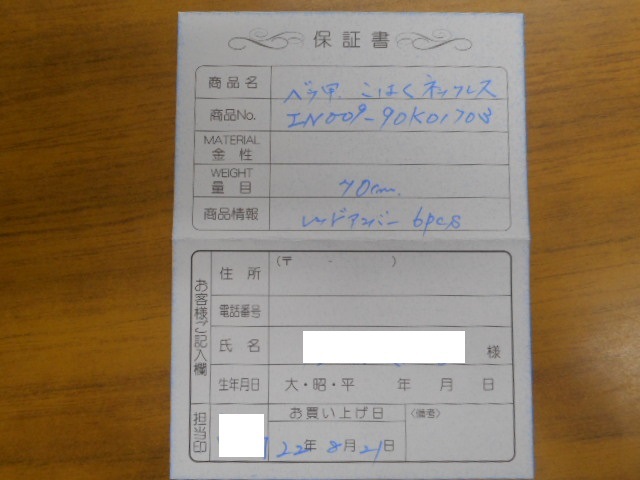 保証書
商品名 ベッ甲 こはくネックレス
商品No. IN009-90K0170B
MATERIAL
金性
WEIGHT
量目 70cm.
商品情報 レッドアンバー 6pcs
お客様ご記入欄
住所 (〒 - )
電話番号
氏名 様
生年月日 大・昭・平 年 月 日
担当印
お買い上げ日 〈備考〉
22年 8月21日